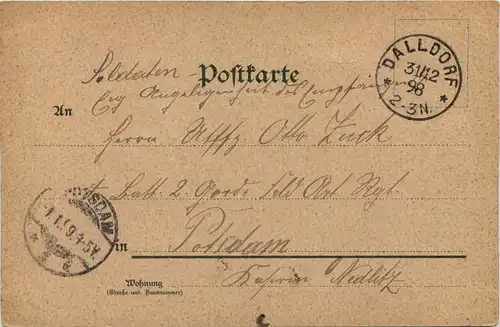 Soldaten-
Postkarte
Eig. Angelegenheit des Empfängers
DALLDORF
31/12
98
* 2-3N. *
An
Herrn Utffz Otto Zuck
Batt. 2 Garde Feld Art Rgt.
POTSDAM
1.1.99.4-5V.
in
Potsdam
Kaserne Nedlitz
Wohnung
(Straße und Hausnummer)